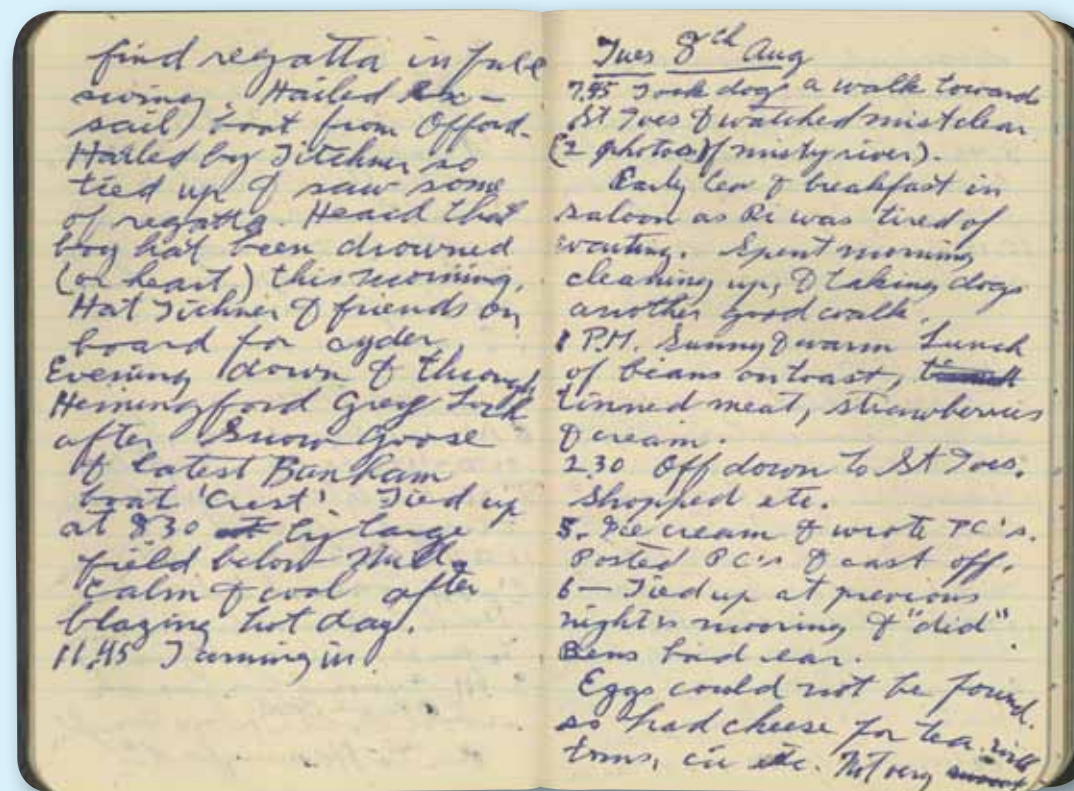 find regatta in full
swing. Hailed Ex-
sail) boat from Offord.
Hailed by Titchner so
tied up & saw some
of regatta. Heard that
boy hat been drowned
(or heart,) this morning.
Hat Tichner & friends on
board for cyder.
Evening down & through
Hemingford Grey Lock
after Snow Goose
& latest Banham
boat 'Crest'. Tied up
at 8.30 by large
field below Mill.
Calm & cool after
blazing hot day.
11.45 Turning in
Tues 8th Aug
7.45 Took dogs a walk towards
St Ives & watched mist clear
(2 photos of misty river).
Early tea & breakfast in
saloon as Ri was tired of
waiting. Spent morning
cleaning up, & taking dogs
another good walk.
1 P.M. Sunny & warm Lunch
of beans on toast,
tinned meat, strawberries
& cream.
2.30 Off down to St Ives.
Shopped etc.
5. Ice cream & wrote PC's.
Posted PC's & cast off.
6 — Tied up at previous
night's mooring & "did"
Bens bad ear.
Eggs could not be found.
so had cheese for tea with
toms, etc. Not very